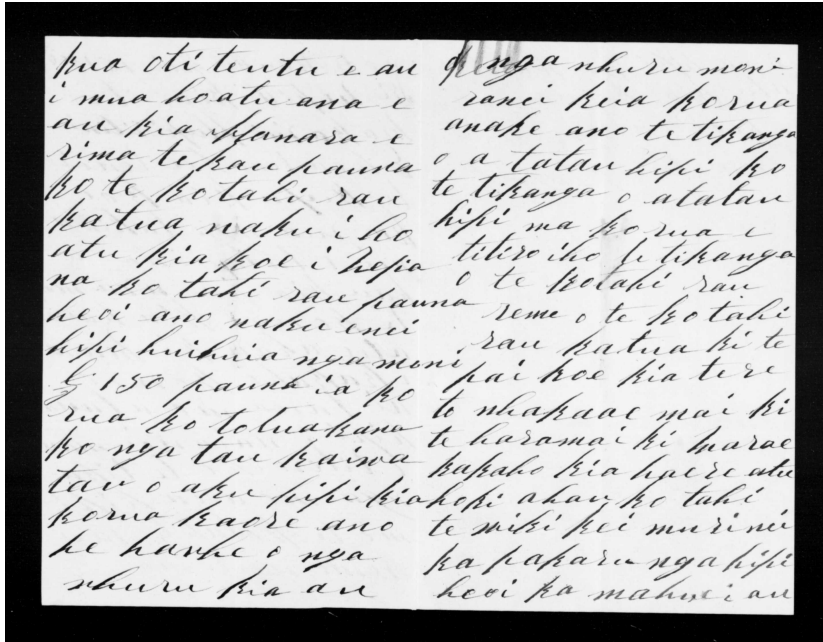 kua oti te utu e au
i mua hoatu ana e
au kia Manara e
rima te kau pauna
ko te kotahi rau
katua naku i ho
atu kia koe i Nepia
na ko tahi rau pauna
heoi ano naku enei
hipi huihuia nga moni
£ 150 pauna ia ko
rua ko to tuakana
ko nga tau kaiwa
tau o aku hipi kia
korua kaore ano
he hawhe o nga
whuru kia au
o nga whuru moni
ranei keia korua
anake ano te tikanga
o a tatau hipi ko
te tikanga o a tatau
hipi ma korua e
titiro iho te tikanga
o te kotahi rau
reme o te kotahi
rau katua ki te
pai koe kia tere
te whakaae mai ki
te haramai ki Marae
kakaho kia haere atu
hoki ahau ko tahi
te wiki kei muri nei
ka pakaru nga hipi
heoi ka mahue i au